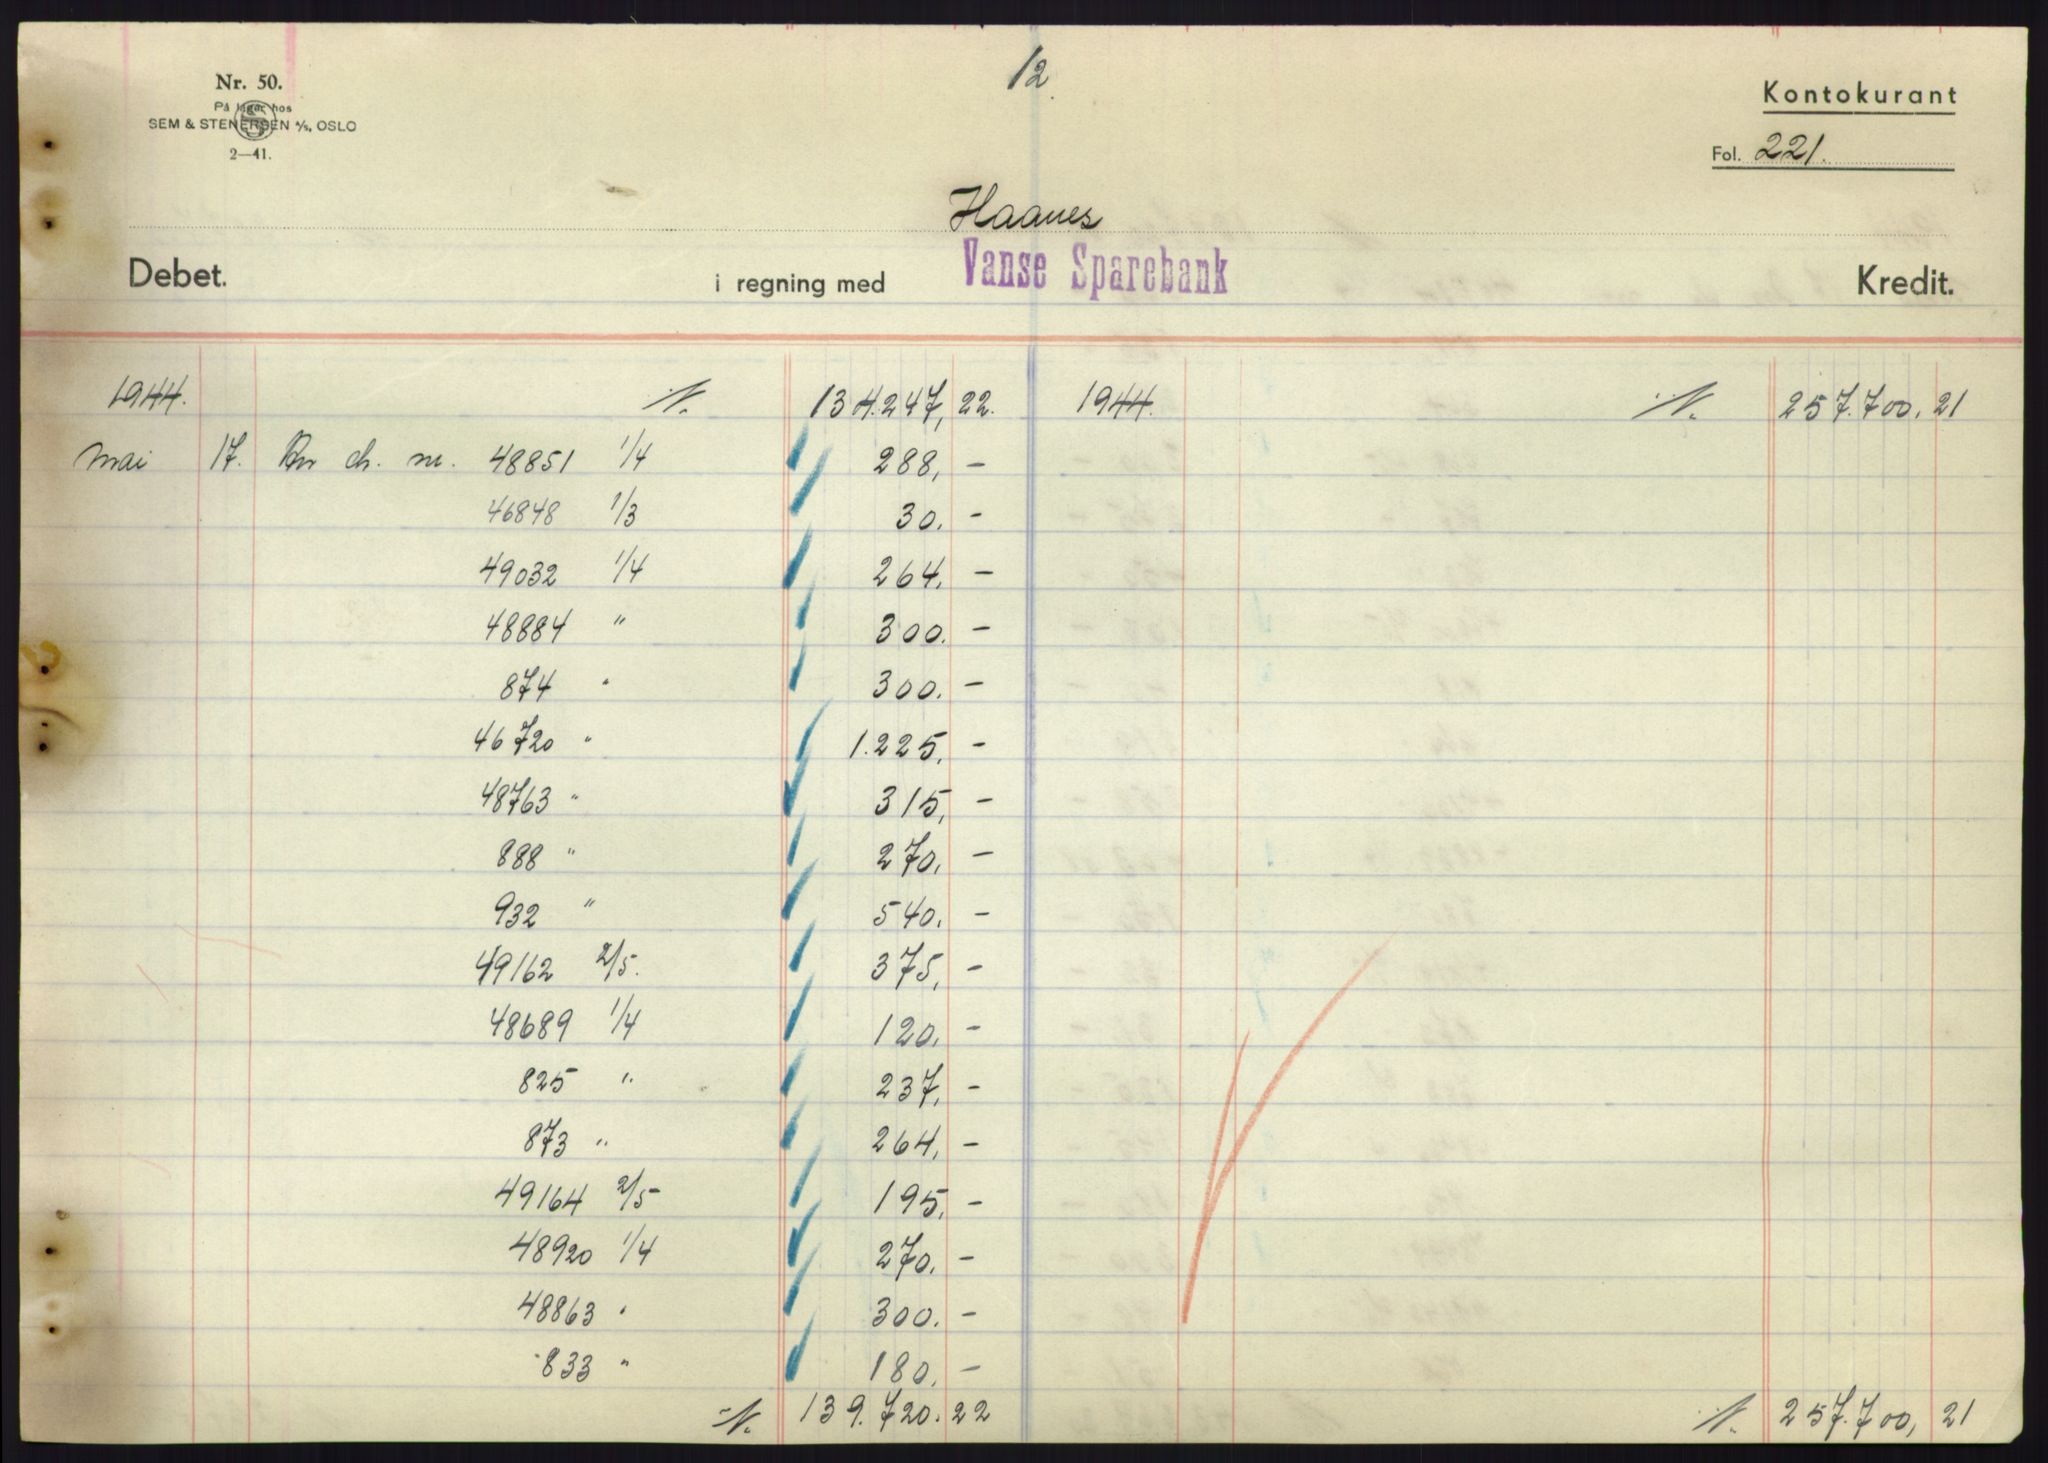 12.
Nr. 50.
På lager hos
SEM & STENERSEN A/S, OSLO
2—41.
Kontokurant
Fol. 221.
Haanes
Debet. i regning med Vanse Sparebank Kredit.
1944. 134.247, 22. 1944. 257.700, 21
Mai 17. ch. nr. 48851 1/4 288, –
46848 1/3 30. –
49032 1/4 264, –
48884 " 300. –
874 " 300. –
46720 " 1.225, –
48763 " 315, –
888 " 270, –
932 " 540. –
49162 2/5. 375, –
48689 1/4 120, –
825 " 237, –
873 " 264, –
49164 2/5 195, –
48920 1/4 270. –
48863 " 300. –
833 " 180, –
139.720.22 257.700, 21